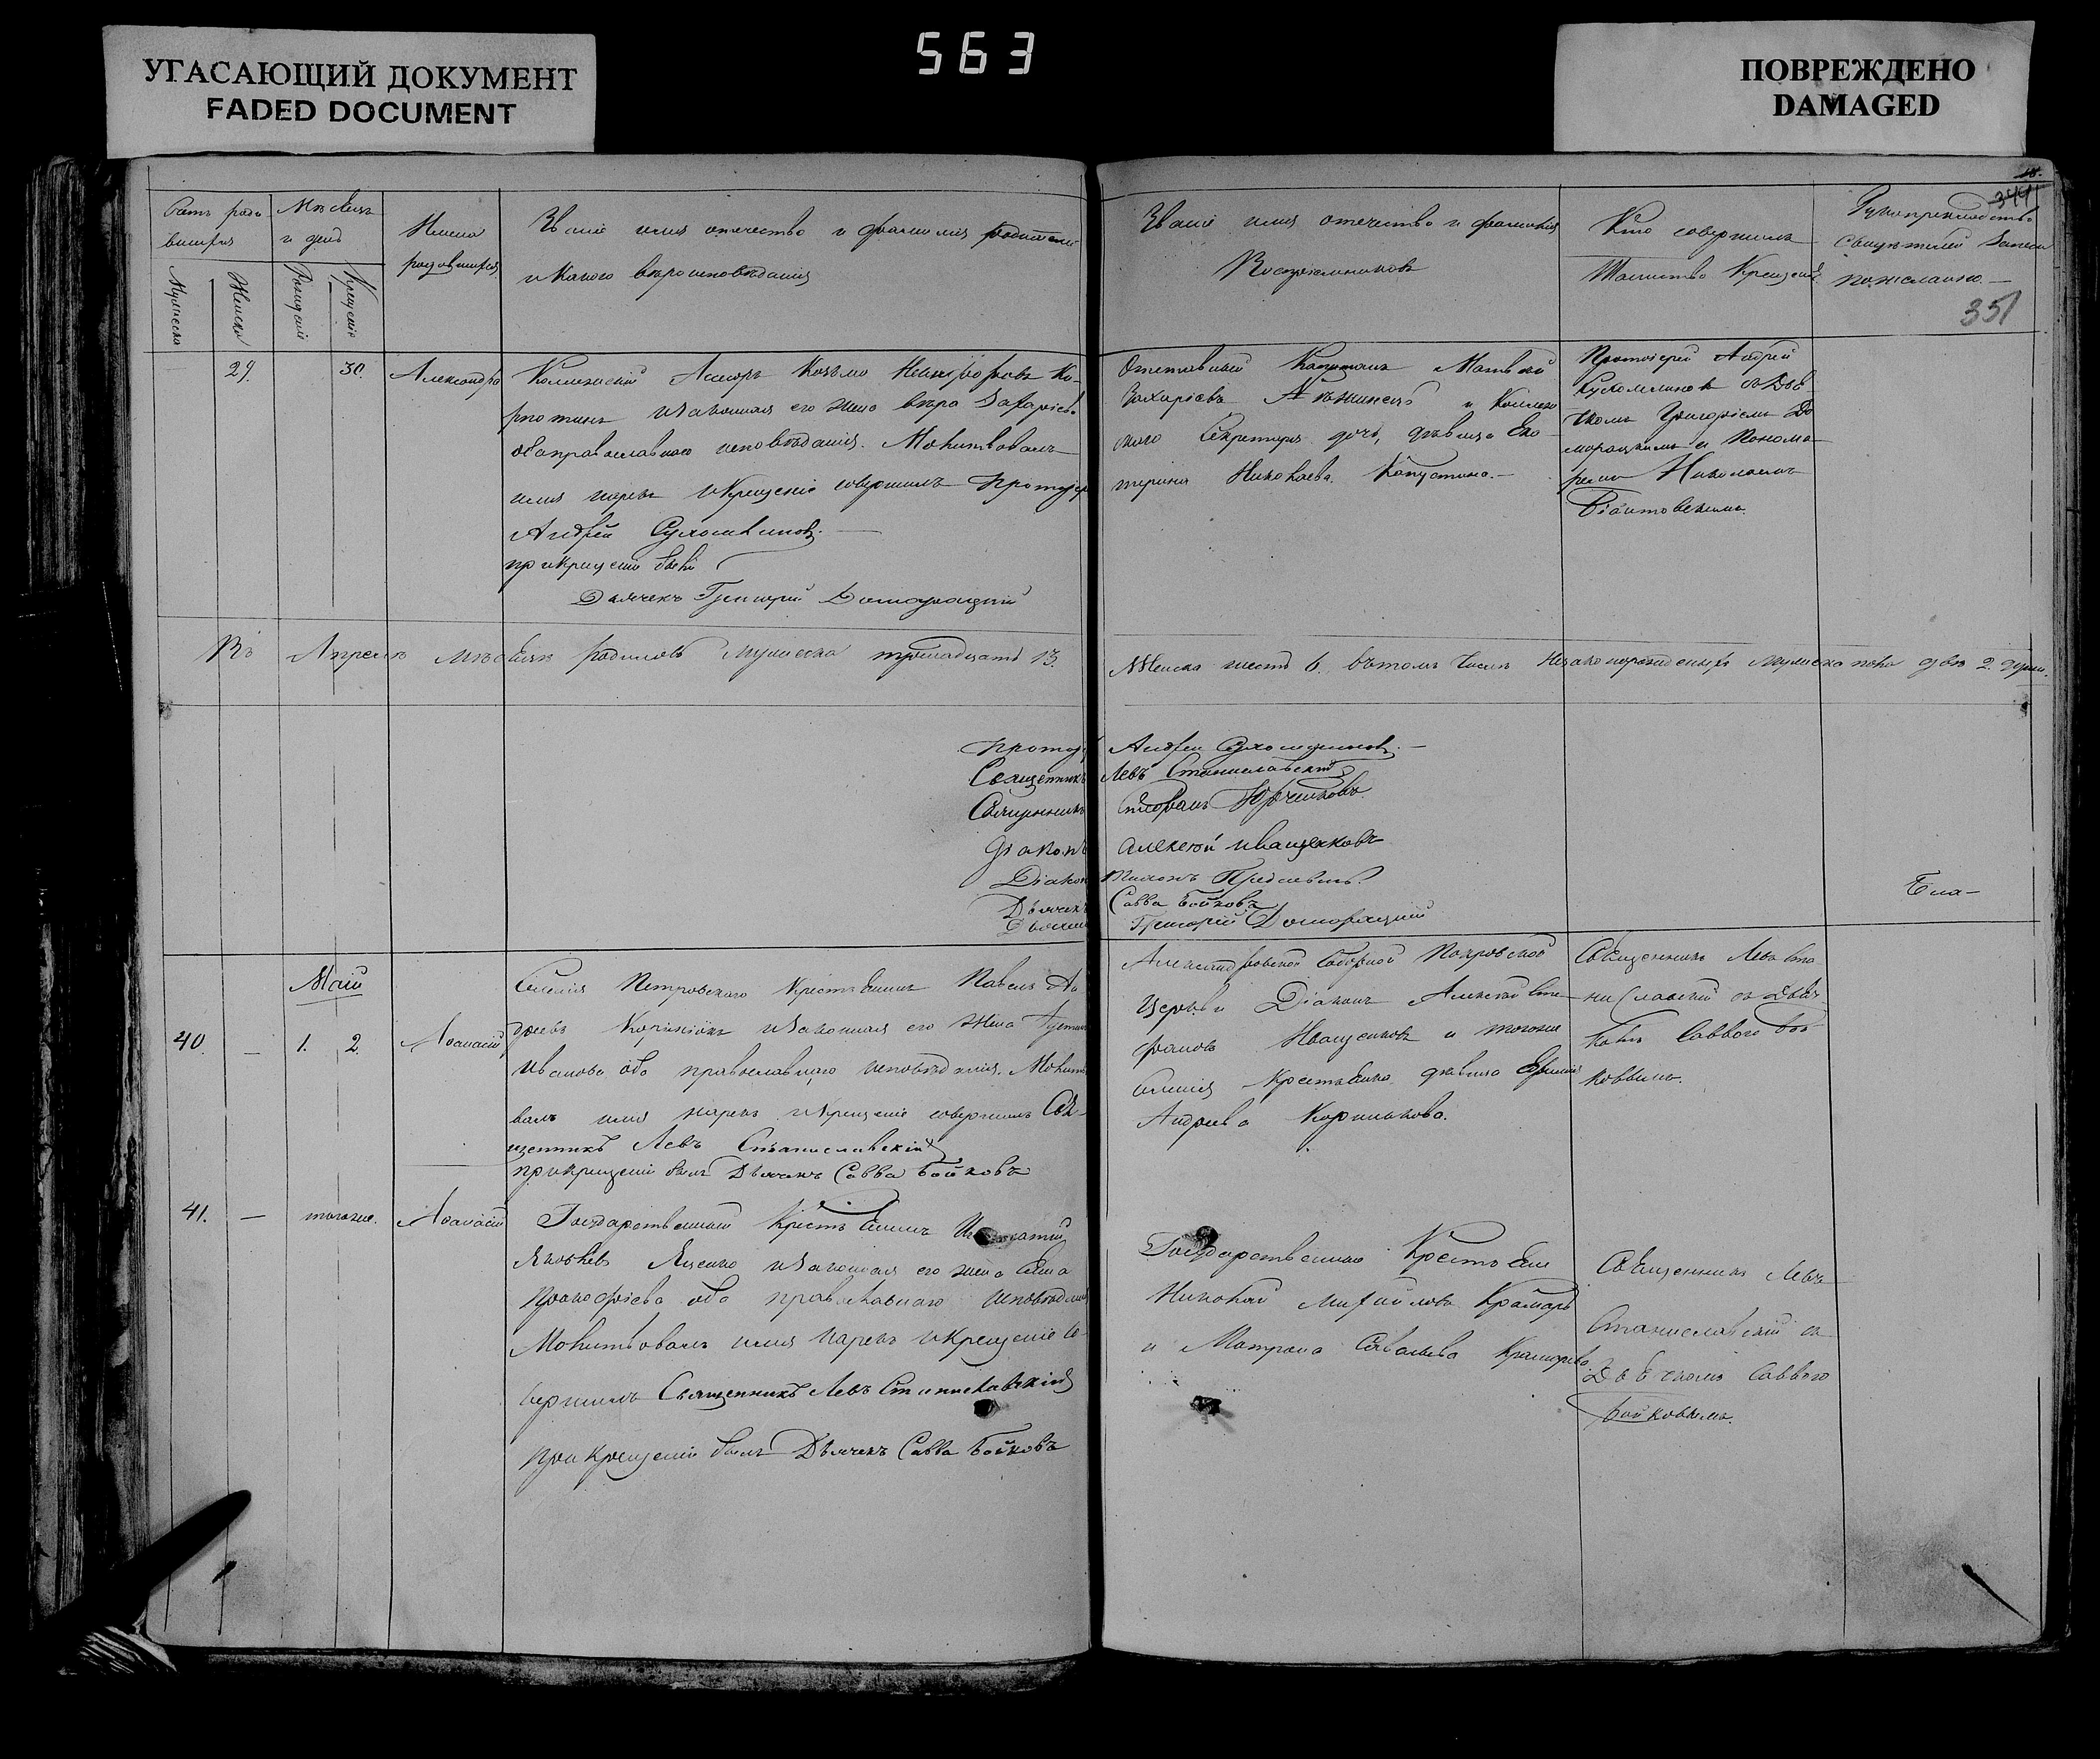 УГАСАЮЩИЙ ДОКУМЕНТ
FADED DOCUMENT
563
ПОВРЕЖДЕНО
DAMAGED
344
351
Мѣсяцъ
и день
Имена
родившихся
Званіе имя отечество и фамилія родителей
и какого вѣроисповѣданія
Мужеска
Женска
Рожденія
Крещенія
Званіе имя отечество и фамилія
Воспріемниковъ
Кто совершилъ
Таинство Крещенія
Рукоприкладство
Свидѣтелей Записи
пожеланію
29.
30.
Александра
Ассесоръ Козьма Никифоровъ
изаконная его жена Вѣра
оба православнаго исповѣданія. Молитвовалъ
имя нарекъ икрещеніе совершилъ Протоіер
Андрей Сухомлиновъ.
при крещеніи былъ
Дьячекъ Григорій Домарацкій
Отставный Капитанъ Матвѣй
Захаріевъ и
Секретаря дочь, дѣвица Ека
терина Николаева Капустина.
Протоіерей Андрей
Сухомлиновъ съ Дья
чкомъ Григоріемъ До
марацкимъ и Понома
ремъ Николаемъ
Въ Апрелѣ мѣсяцѣ родилось мужеска тринадцать 13.
Женска шесть 6. вътомъ числѣ незаконорожденныхъ мужеска пола двѣ 2. души.
Протоі Андрей Сухомлиновъ.
Священникъ Левъ Станиславскій
Священникъ Стефанъ Юрченковъ
Діаконъ Алексѣй Иващенковъ
Діакон
Дьячекъ Савва Бойковъ
Дьячек Григорій Домарацкій
Май
40.
—
1.
2.
Аѳанасій
Селенія Петровскаго Крестьянинъ Павелъ Ан
дреевъ изаконная его жена
Иванова оба православнаго исповѣданія. Молитво
валъ имя нарекъ икрещеніе совершилъ Свя
щенникъ Левъ Станиславскій
при крещеніи былъ Дьячекъ Савва Бойковъ
Александровской Соборной Покровской
Церкви Діаконъ Алексѣй Сте
фановъ Иващенковъ и тогоже
селенія Крестьянка дѣвица
Андреева Корникова.
Священникъ Левъ Ста
ниславскій съ Дьяч
комъ Саввою Бой
ковымъ.
41.
—
тогоже.
Аѳанасій
Государственный Крестьянинъ
Яковлевъ Яценко изаконная его жена
Прокофіева оба православнаго исповѣданія
Молитвовалъ имя нарекъ икрещеніе со
вершилъ Священникъ Левъ Станиславскій
при крещеніи былъ Дьячекъ Савва Бойковъ
Государственный Крестьянин
Николай Михайловъ Крамарь
и Матрона Савельева Крамарева
Священникъ Левъ
Станиславскій съ
Дьячкомъ Саввою
Бойковымъ.